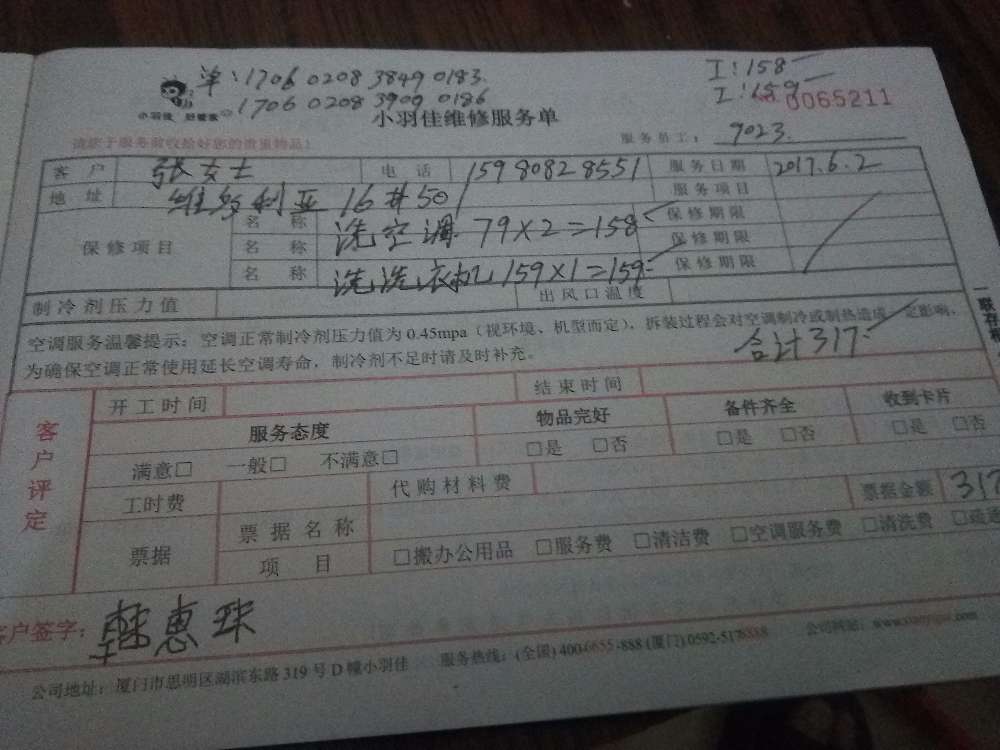 单:1706 0208 3849 0183. I:158
1706 0208 3900 0186 I:159
小羽佳 0065211
小羽佳维修服务单
服务员工: 9023.
客户 张女士 电话 15980828551 服务日期 2017.6.2
地址 维多利亚16#501 服务项目
保修项目 名称 洗空调 79×2=158 保修期限
名称 保修期限
名称 洗洗衣机 159×1=159 保修期限
制冷剂压力值 出风口温度
空调服务温馨提示:空调正常制冷剂压力值为0.45mpa(视环境、机型而定),拆装过程会对空调制冷或制热造成一定影响,
为确保空调正常使用延长空调寿命,制冷剂不足时请及时补充。 合计317
客户评定
开工时间 结束时间
服务态度 物品完好 备件齐全 收到卡片
满意□ 一般□ 不满意□ □是 □否 □是 □否 □是 □否
工时费 代购材料费 票据金额 317
票据 票据名称
项目 □搬办公用品 □服务费 □清洁费 □空调服务费 □清洗费
客户签字: 韩惠珠
公司地址:厦门市思明区湖滨东路319号D幢小羽佳 服务热线:(全国)400-6655-888(厦门)0592-5178888 公司网站: